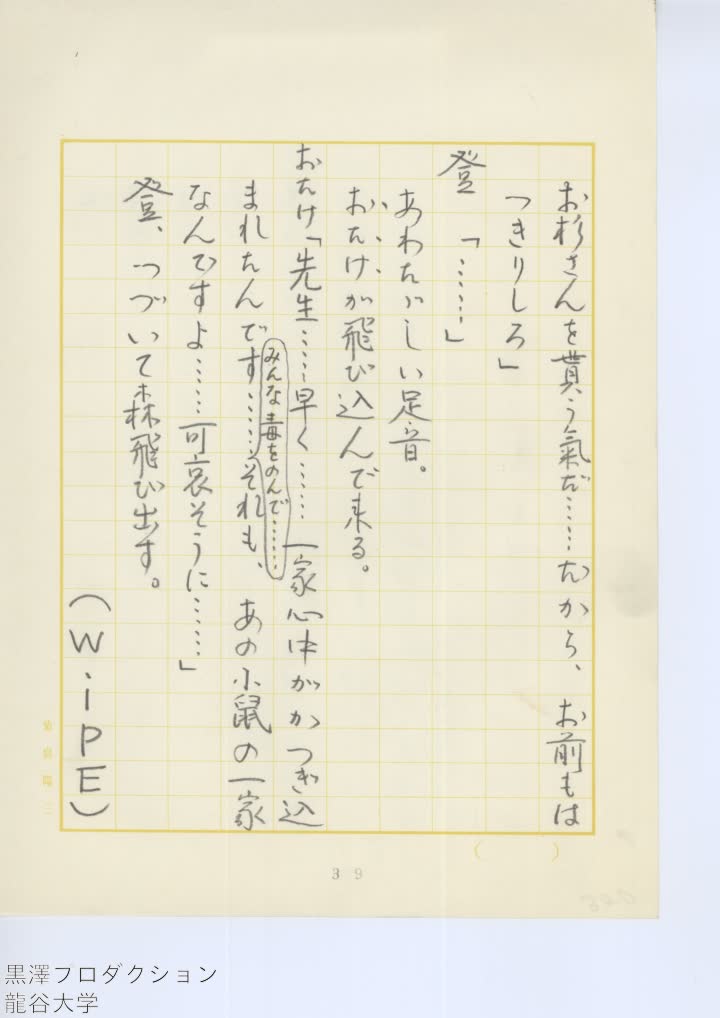 お杉さんを貰う氣だ……だから、お前もは
つきりしろ」
登「……」
あわたゞしい足音。
おたけが飛び込んで来る。
おたけ「先生……早く……一家心中がかつぎ込
まれたんです……それも、あの小鼠の一家
みんな毒をのんで……
なんですよ……可哀そうに……」
登、つづいて森飛び出す。
(WiPE)
39
黒澤プロダクション
龍谷大学